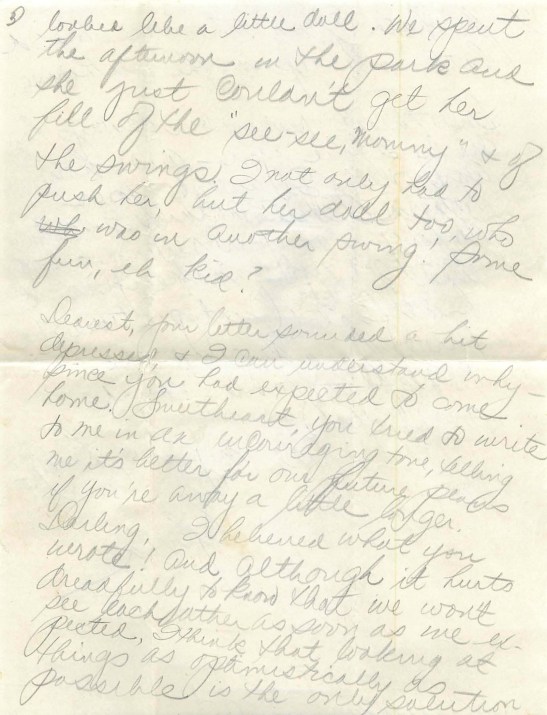 3) looked like a little doll. We spent
the afternoon in the park and
she just couldn't get her
fill of the "see-see, Mommy" & of
the swings. I not only had to
push her, but her doll too, who
was in another swing! Some
fun, eh kid?
Dearest, your letter sounded a bit
depressed, & I can understand why –
since you had expected to come
home. Sweetheart, you tried to write
to me in an encouraging tone, telling
me it's better for our future plans
if you're away a little longer.
Darling, I believed what you
wrote! And although it hurts
dreadfully to know that we won't
see each other as soon as we ex-
pected, I think that looking at
things as optimistically as
possible is the only solution